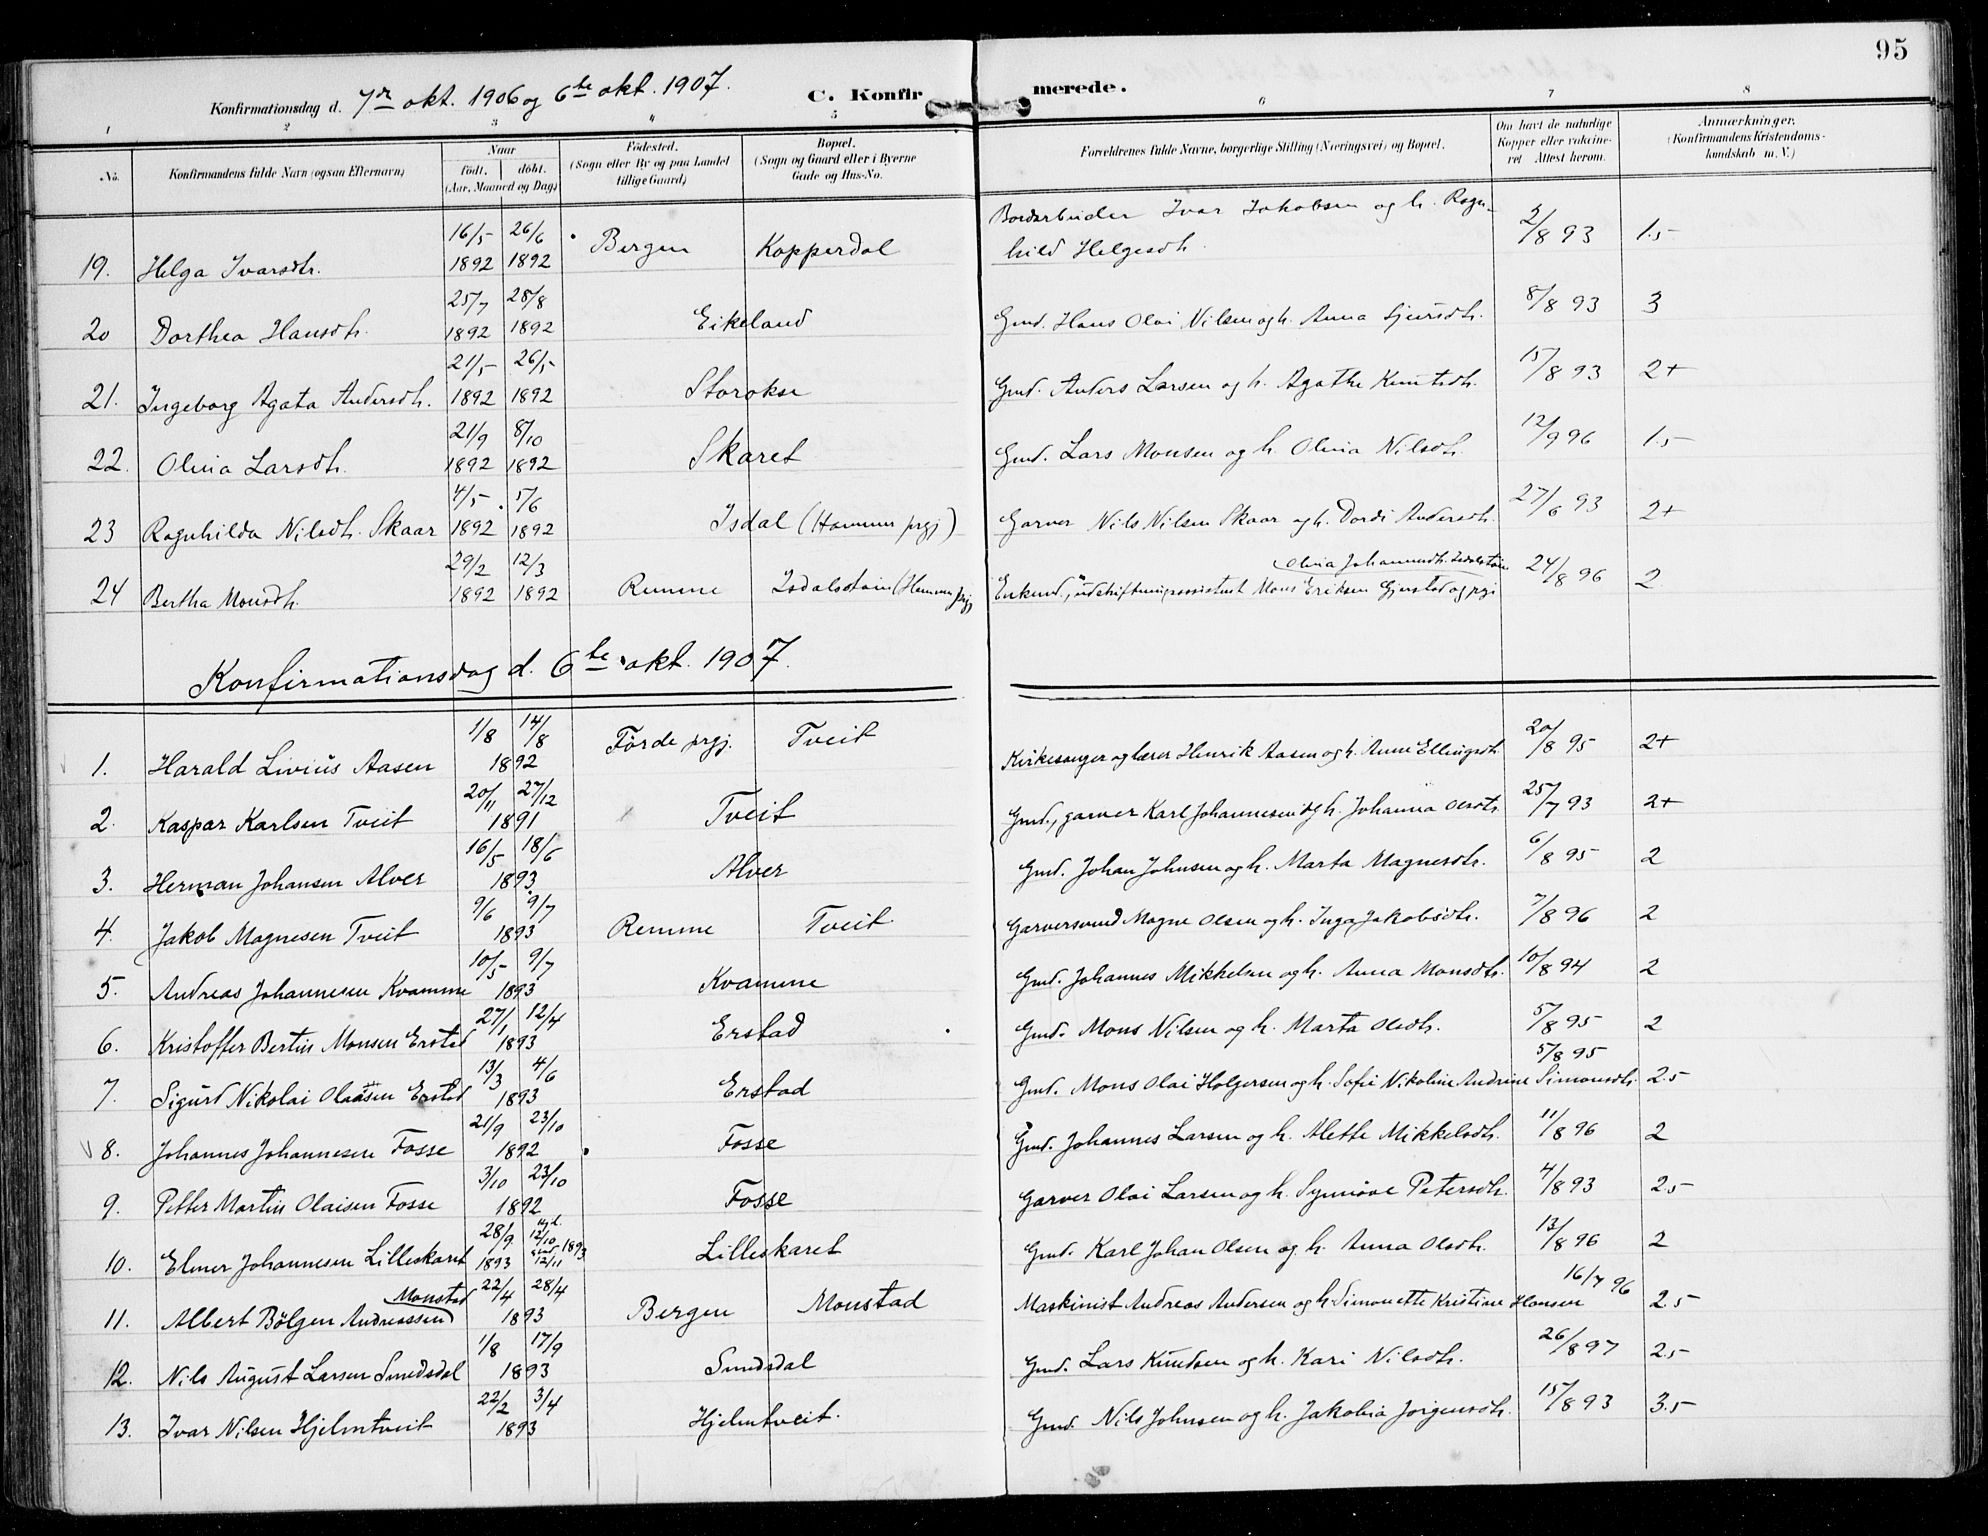 95
Konfirmationsdag d. 7de okt. 1906 og 6te okt. 1907. C. Konfirmerede.
1 2 3 4 5 6 7 8
No. Konfirmandens fulde Navn (ogsaa Efternavn) Naar født, døbt. (Aar, Maaned og Dag) Fødested. (Sogn eller By og paa Landet tillige Gaard) Bopæl. (Sogn og Gaard eller i Byerne Gade og Hus-No. Forældrenes fulde Navne, borgerlige Stilling (Næringsvei) og Bopæl. Om havt de naturlige Kopper eller vakcineret. Attest herom. Anmærkninger. (Konfirmandens Kristendomskundskab m. V.)
19. Helga Ivarsdtr. 16/5 1892 26/6 1892 Bergen Kopperdal Bordarbeider Ivar Jakobsen og h. Ragnhild Helgesdtr. 2/8 93 1.5
20 Dorthea Hansdtr. 25/7 1892 28/8 1892 Eikeland Gmd. Hans Olai Nilsen og h. Anna Sjursdtr. 8/8 93 3
21. Ingeborg Agata Andersdtr. 21/5 1892 26/5 1892 Storokse Gmd. Anders Larsen og h. Agathe Knutsdtr. 15/8 93 2+
22. Olina Larsdtr. 21/9 1892 8/10 1892 Skaret Gmd. Lars Monsen og h. Olina Nilsdtr. 12/9 96 1.5
23 Ragnhilda Nilsdtr. Skaar 4/5 1892 5/6 1892 Isdal (Hammer prgj) Garver Nils Nilsen Skaar og h. Dordi Andersdtr. 27/6 93 2+
24 Bertha Monsdtr. 29/2 1892 12/3 1892 Remme Isdalstøen (Hammer prgj) Enkemd., udskiftningsassistent Mons Eriksen Gjerstad og pigi Olina Johannesdtr. Isdalstøen 24/8 96 2
Konfirmationsdag d. 6te okt. 1907.
1. Harald Livius Aasen 1/8 14/8 1892 Førde prgj. Tveit Kirkesanger og lærer Henrik Aasen og h. Anne Ellingsdtr. 20/8 95 2+
2. Kaspar Karlsen Tveit 20/11 27/12 1891 Tveit Gmd., garver Karl Johannesen og h. Johanna Olsdtr. 25/7 93 2+
3. Herman Johansen Alver 16/5 18/6 1893 Alver Gmd. Johan Johnsen og h. Marta Magnesdtr. 6/8 95 2
4. Jakob Magnesen Tveit 9/6 9/7 1893 Remme Tveit Garversvend Magne Olsen og h. Inga Jakobsdtr. 7/8 96 2
5. Andreas Johannesen Kvamme 10/5 9/7 1893 Kvamme Gmd. Johannes Mikkelsen og h. Anna Monsdtr. 10/8 94 2
6. Kristoffer Bertin Monsen Erstad 27/1 12/4 1893 Erstad Gmd. Mons Nilsen og h. Marta Olsdtr. 5/8 95 2
7. Sigurd Nikolai Olaisen Erstad 13/3 4/6 1893 Erstad Gmd. Mons Olai Holgersen og h. Sofie Nikoline Andrine Simonsdtr. 5/8 95 2.5
8. Johannes Johannesen Fosse 21/9 23/10 1892 Fosse Gmd. Johannes Larsen og h. Alette Mikkelsdtr. 11/8 96 2
9. Petter Martin Olaisen Fosse 3/10 23/10 1892 Fosse Garver Olai Larsen og h. Synnøve Petersdtr. 4/8 93 2.5
10. Elmer Johannesen Lilleskaret 28/9 1893 12/10 12/11 1893 Lilleskaret Gmd. Karl Johan Olsen og h. Anna Olsdtr. 13/8 96 2
11. Albert Bølgen Andreassen Monstad 22/4 28/4 1893 Bergen Monstad Maskinist Andreas Andersen og h. Simonette Kristine Hansen 16/7 96 2.5
12. Nils August Larsen Smedsdal 1/8 17/9 1893 Smedsdal Gmd. Lars Knudsen og h. Kari Nilsdtr. 26/8 97 2.5
13. Ivar Nilsen Hjelmtveit 22/2 3/4 1893 Hjelmtveit. Gmd. Nils Johnsen og h. Jakobia Jørgensdtr. 15/8 93 3.5